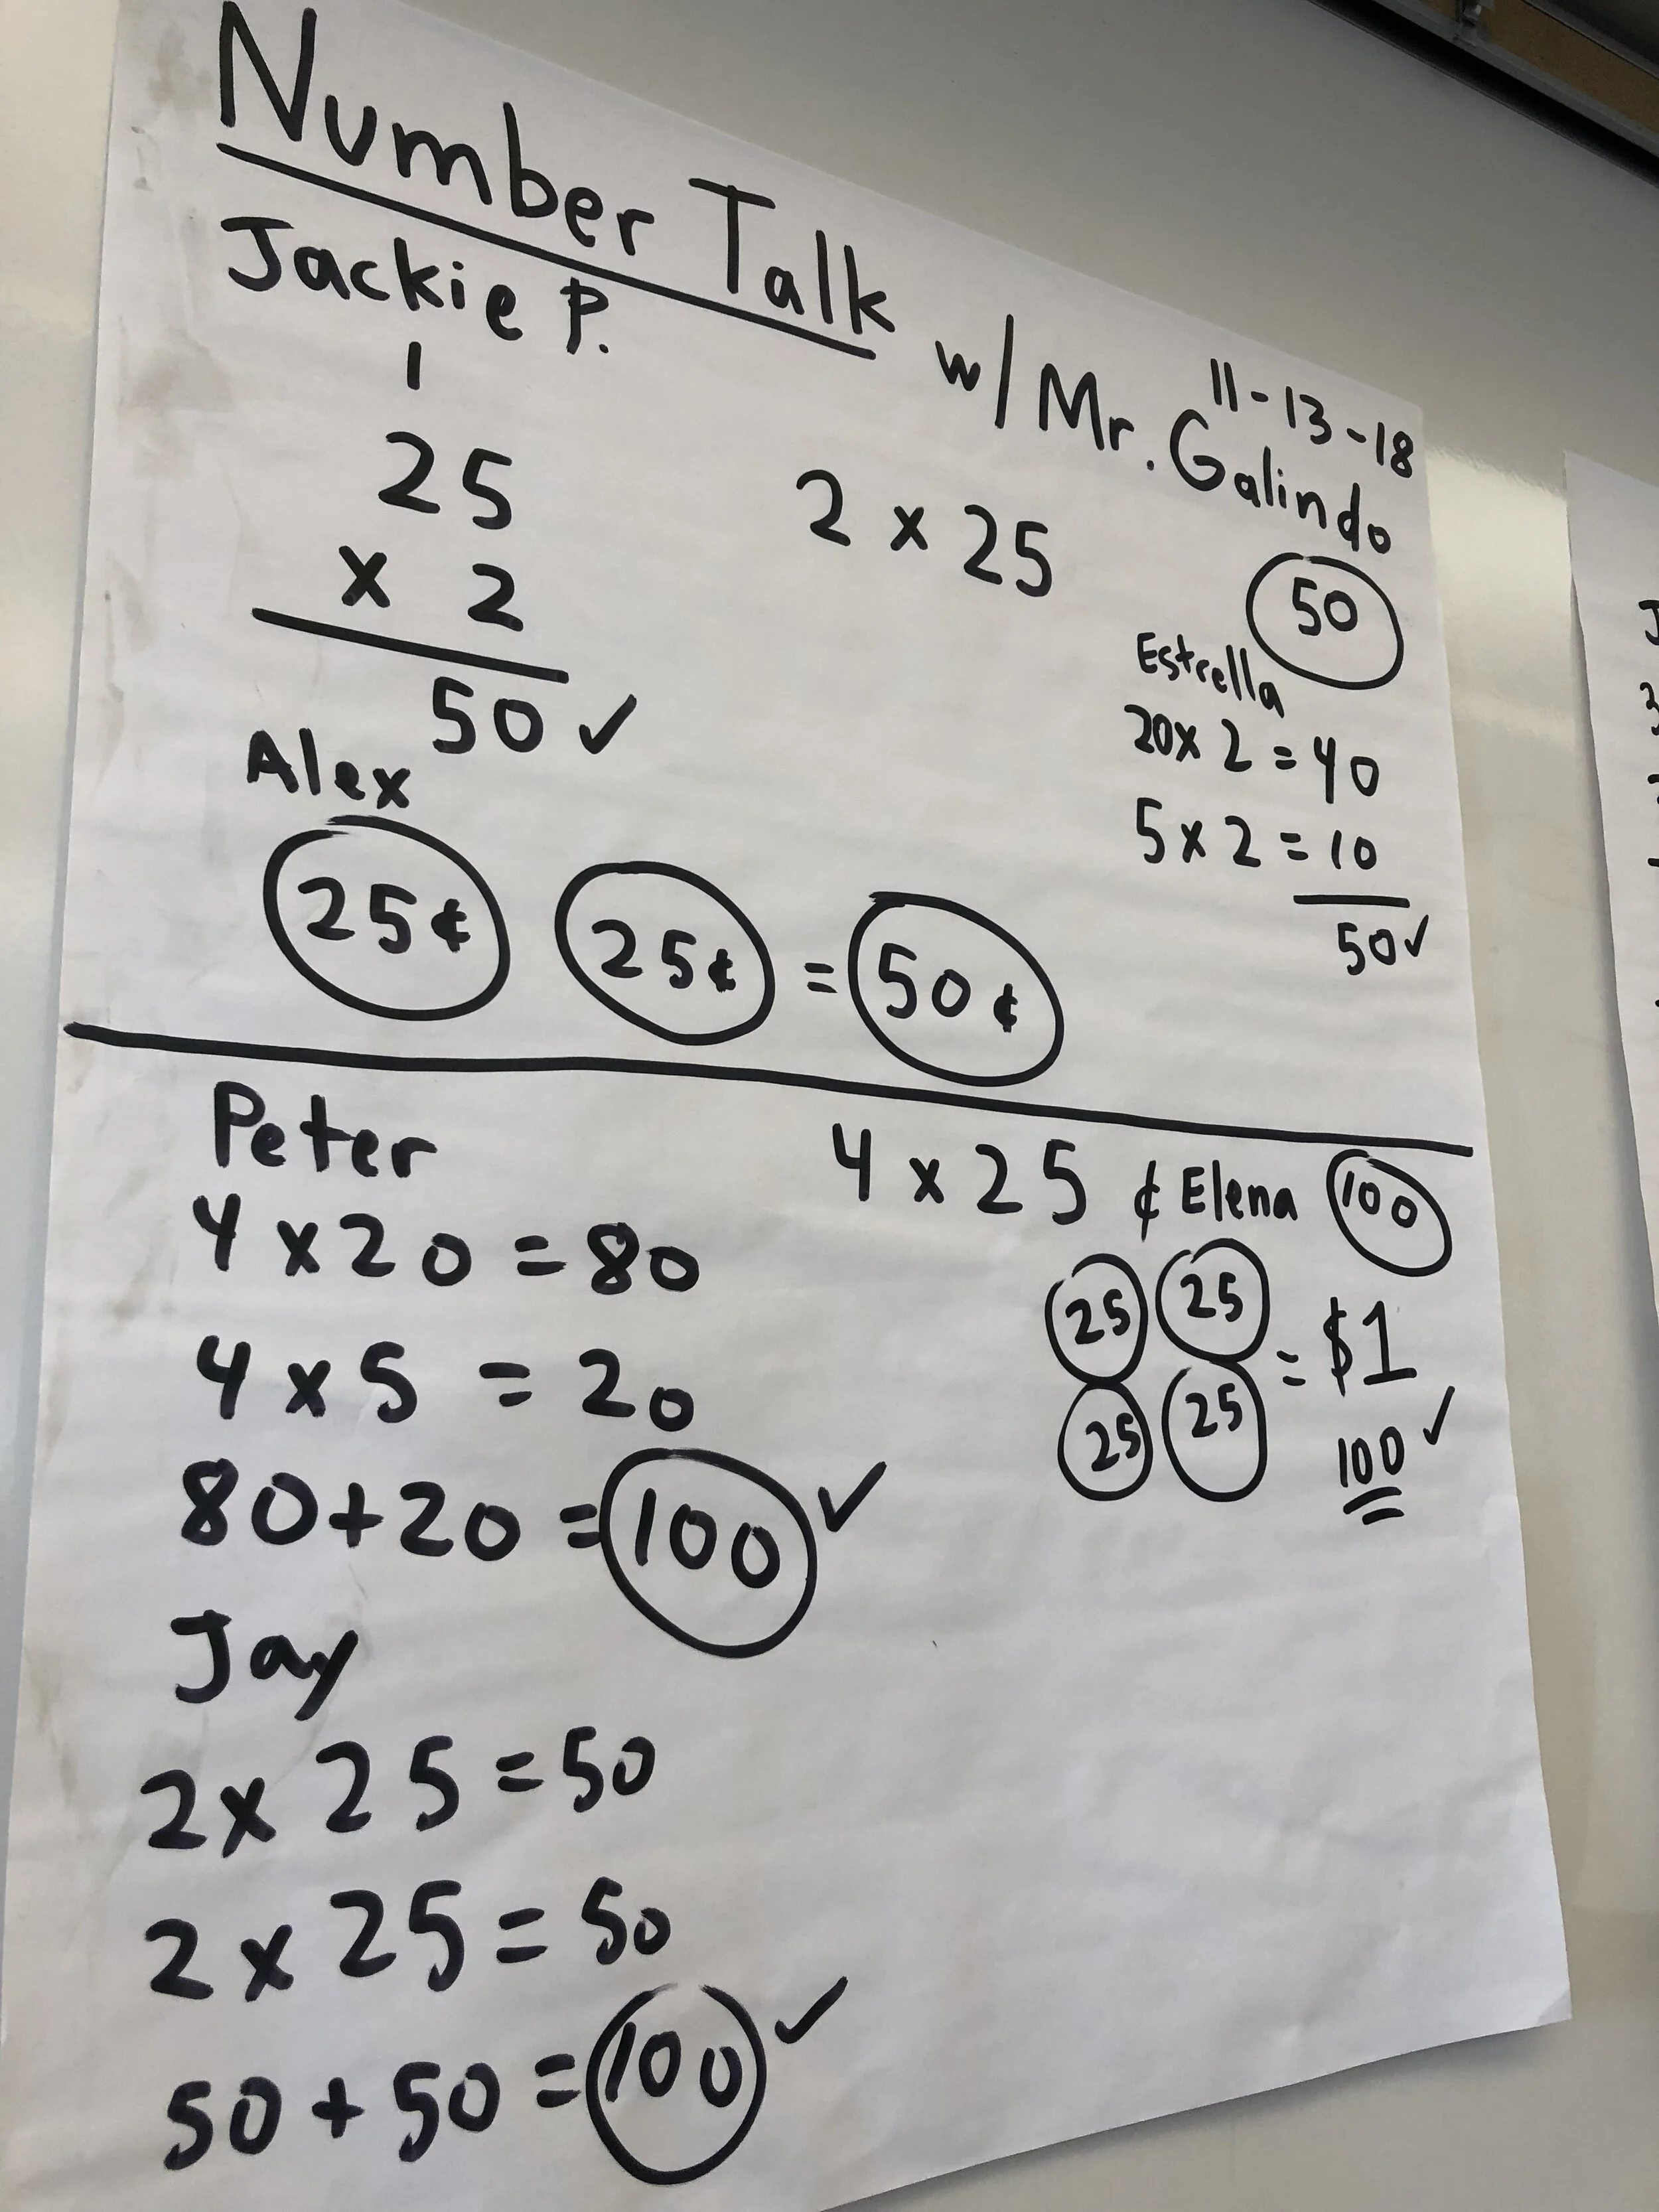 Number Talk w/ Mr. Galindo
11-13-18
Jackie P.
1
25
x 2
50 ✓
2 x 25
50
Estrella
20x 2 = 40
5 x 2 = 10
50 ✓
Alex
25¢ 25¢ = 50¢
4 x 25
100
Peter
4 x 20 = 80
4 x 5 = 20
80+20 = 100 ✓
¢ Elena
25 25
25 25
= $1
100 ✓
Jay
2x 25 = 50
2 x 25 = 50
50 + 50 = 100 ✓